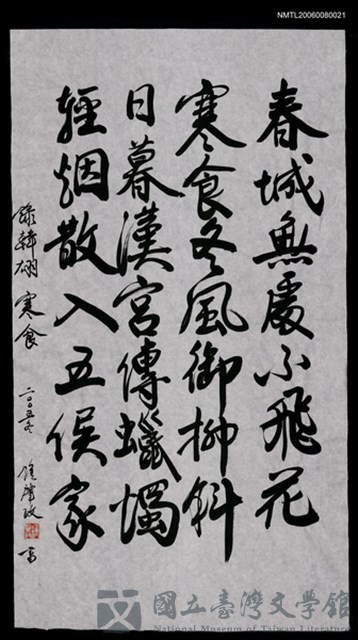 NMTL20060080021
春城無處不飛花
寒食東風御柳斜
日暮漢宮傳蠟燭
輕烟散入五侯家
錄韓翃 寒食 二〇〇五 書
國立臺灣文學館
National Museum of Taiwan Literature